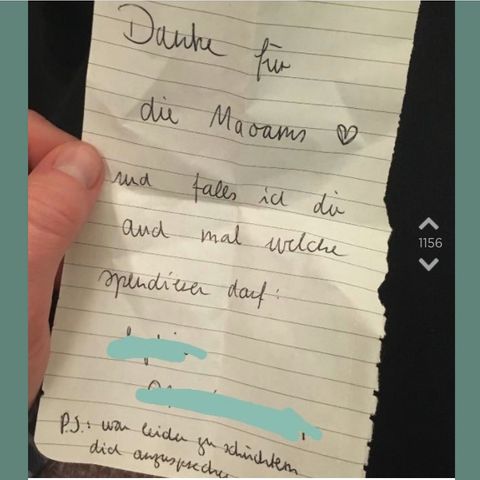 Danke für
die Maoams ♡
und falls ich dir
auch mal welche
spendieren darf:
1156
P.S.: war leider zu schüchtern
dich anzusprechen